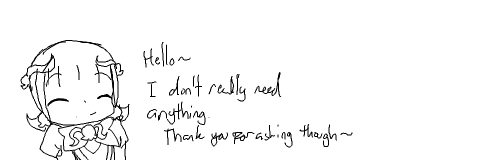 Hello~
I don't really need
anything.
Thank you for asking though~